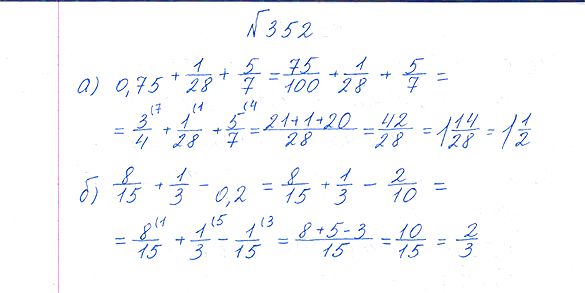 №352
а) 0,75 + 1/28 + 5/7 = 75/100 + 1/28 + 5/7 =
= 3/4 (7 + 1/28 (1 + 5/7 (4 = 21+1+20/28 = 42/28 = 1 14/28 = 1 1/2
б) 8/15 + 1/3 - 0,2 = 8/15 + 1/3 - 2/10 =
= 8/15 (1 + 1/3 (5 - 1/15 (3 = 8+5-3/15 = 10/15 = 2/3